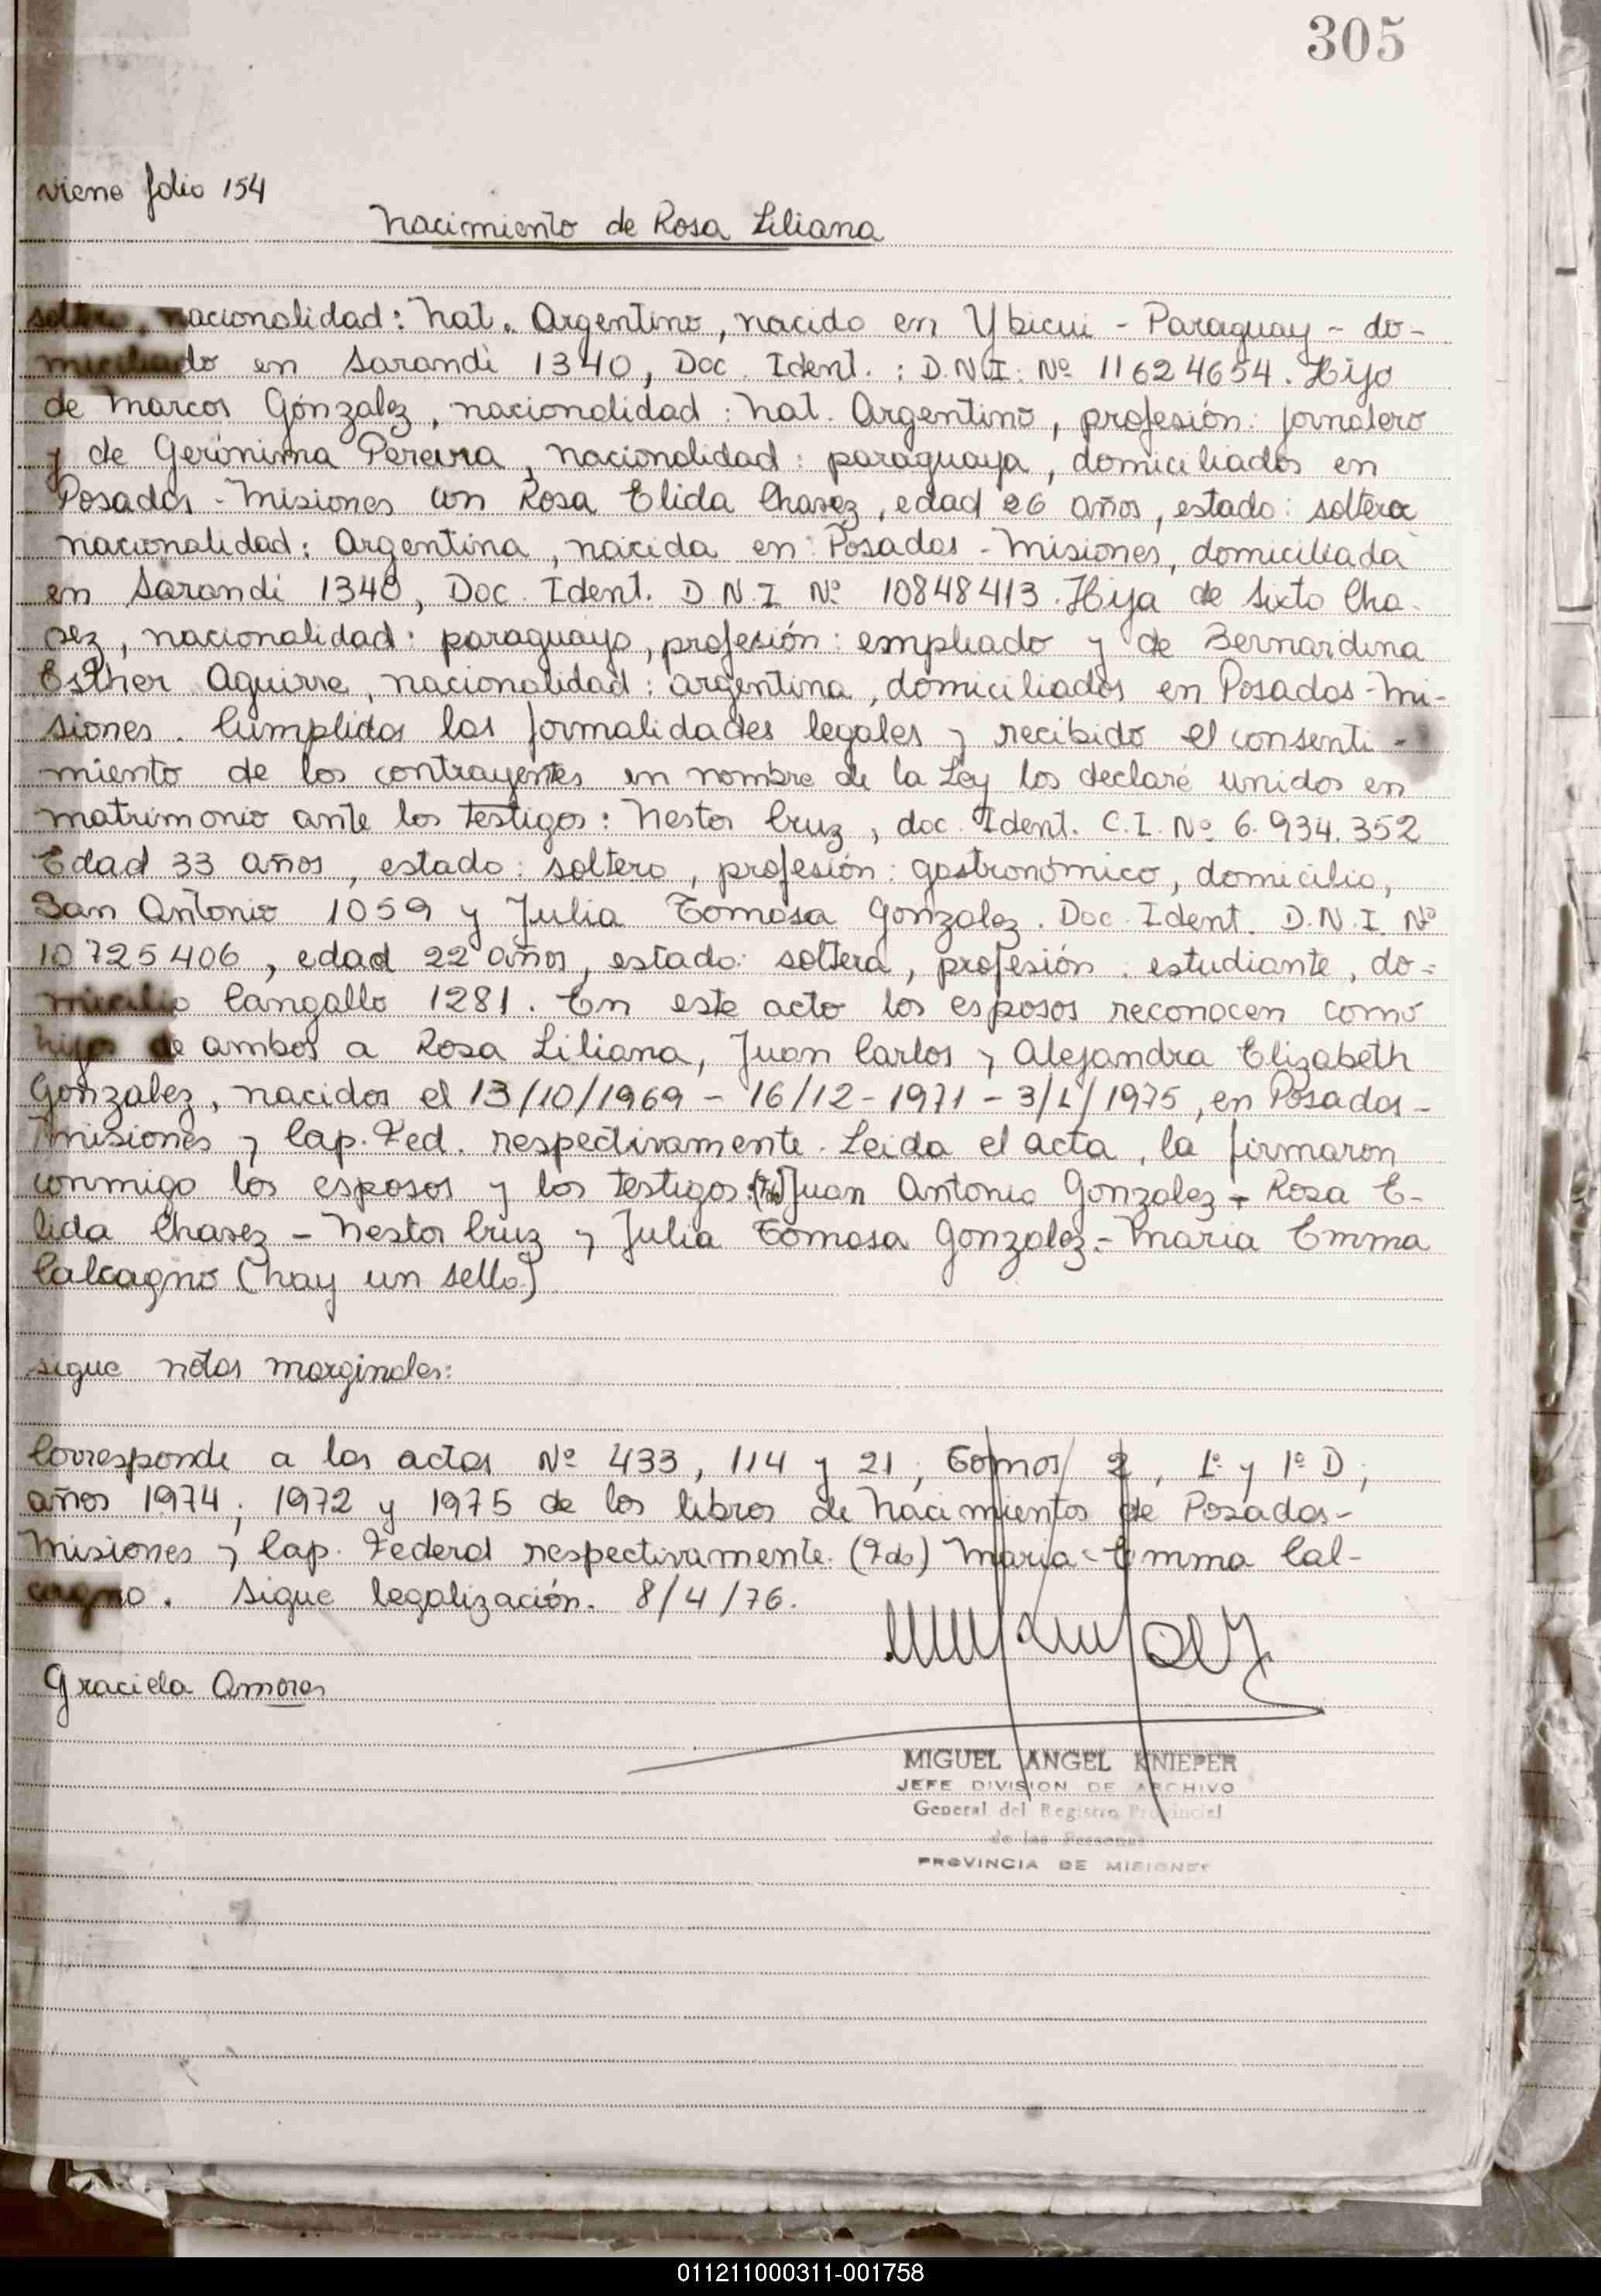 305
viene folio 154
Nacimiento de Rosa Liliana
soltero, nacionalidad: Nat. Argentino, nacido en Ybicui - Paraguay - do-
miciliado en Sarandi 1340, Doc. Ident.: D.N.I: Nº 11624654. Hijo
de Marcos Gónzalez, nacionalidad: Nat. Argentino, profesión: jornalero
y de Gerónima Pereira, nacionalidad: paraguaya, domiciliados en
Posadas - Misiones con Rosa Elida Chavez, edad 26 años, estado: soltera
nacionalidad: Argentina, nacida en Posadas - Misiones, domiciliada
en Sarandi 1340, Doc. Ident. D.N.I Nº 10848413. Hija de Sixto Cha-
vez, nacionalidad: paraguayo, profesión: empleado y de Bernardina
Esther Aguirre, nacionalidad: argentina, domiciliados en Posadas - Mi-
siones. Cumplidas las formalidades legales y recibido el consenti-
miento de los contrayentes en nombre de la Ley los declaré unidos en
matrimonio ante los testigos: Nestor Cruz, doc. Ident. C.I. Nº 6.934.352
Edad 33 años, estado: soltero, profesión: gastronómico, domicilio,
San Antonio 1059 y Julia Tomasa Gonzalez. Doc. Ident. D.N.I. Nº
10725406, edad 22 años, estado: soltera, profesión: estudiante, do-
micilio Cangallo 1281. En este acto los esposos reconocen como
hijos de ambos a Rosa Liliana, Juan Carlos y Alejandra Elizabeth
Gonzalez, nacidos el 13/10/1969 - 16/12-1971 - 3/1/1975, en Posadas -
Misiones y Cap. Fed. respectivamente. Leida el acta, la firmaron
conmigo los esposos y los testigos: (Fdo) Juan Antonio Gonzalez - Rosa E-
lida Chavez - Nestor Cruz y Julia Tomasa Gonzalez - Maria Emma
Calcagno (hay un sello)
sigue notas marginales:
Corresponde a las actas Nº 433, 114 y 21, Tomos 2, 1º y 1º D,
años 1974, 1972 y 1975 de los libros de Nacimientos de Posadas -
Misiones y Cap. Federal respectivamente. (Fdo) Maria Emma Cal-
cagno. Sigue legalización. 8/4/76.
Graciela Amores
MIGUEL ANGEL KNIEPER
JEFE DIVISION DE ARCHIVO
General del Registro Provincial
de las Personas
PROVINCIA DE MISIONES
011211000311-001758